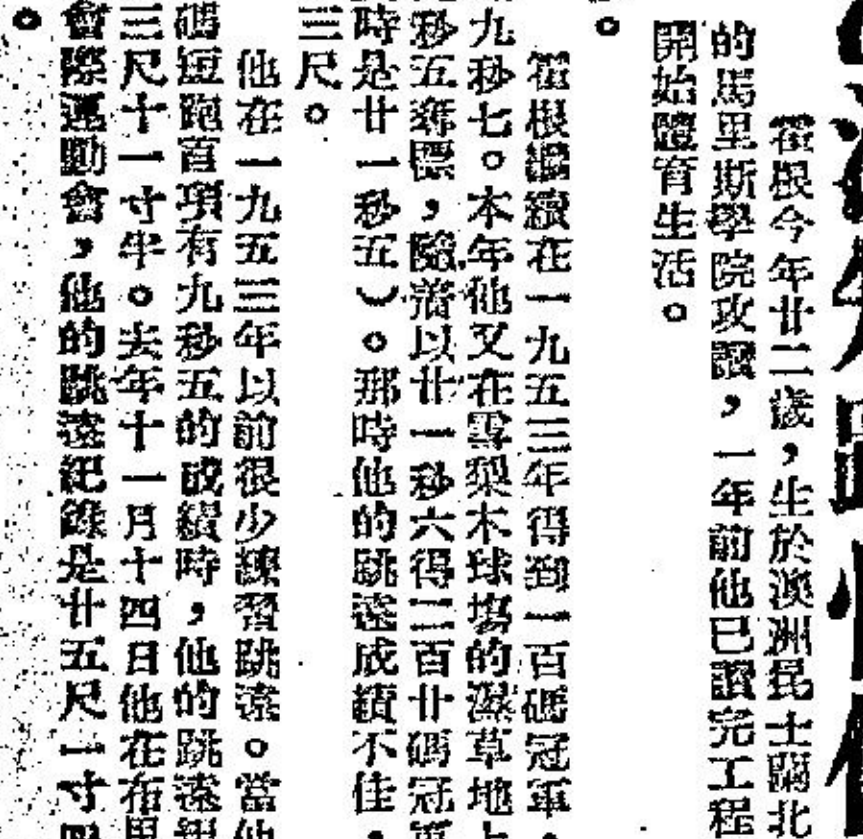 霍根今年廿二歲，生於澳洲昆士蘭北
的馬里斯學院攻讀，一年前他已讀完工程
開始體育生活。
。
霍根繼續在一九五三年得到一百碼冠軍，
九秒七。本年他又在雪梨木球場的濕草地上
秒五奪標，隨着以廿一秒六得二百廿碼冠軍
時是廿一秒五）。那時他的跳遠成績不佳，
三尺。
他在一九五三年以前很少練習跳遠。當他
碼短跑首項有九秒五的成績時，他的跳遠
三尺十一寸半。去年十一月十四日他在布里
會際運動會，他的跳遠紀錄是廿五尺一寸四
。